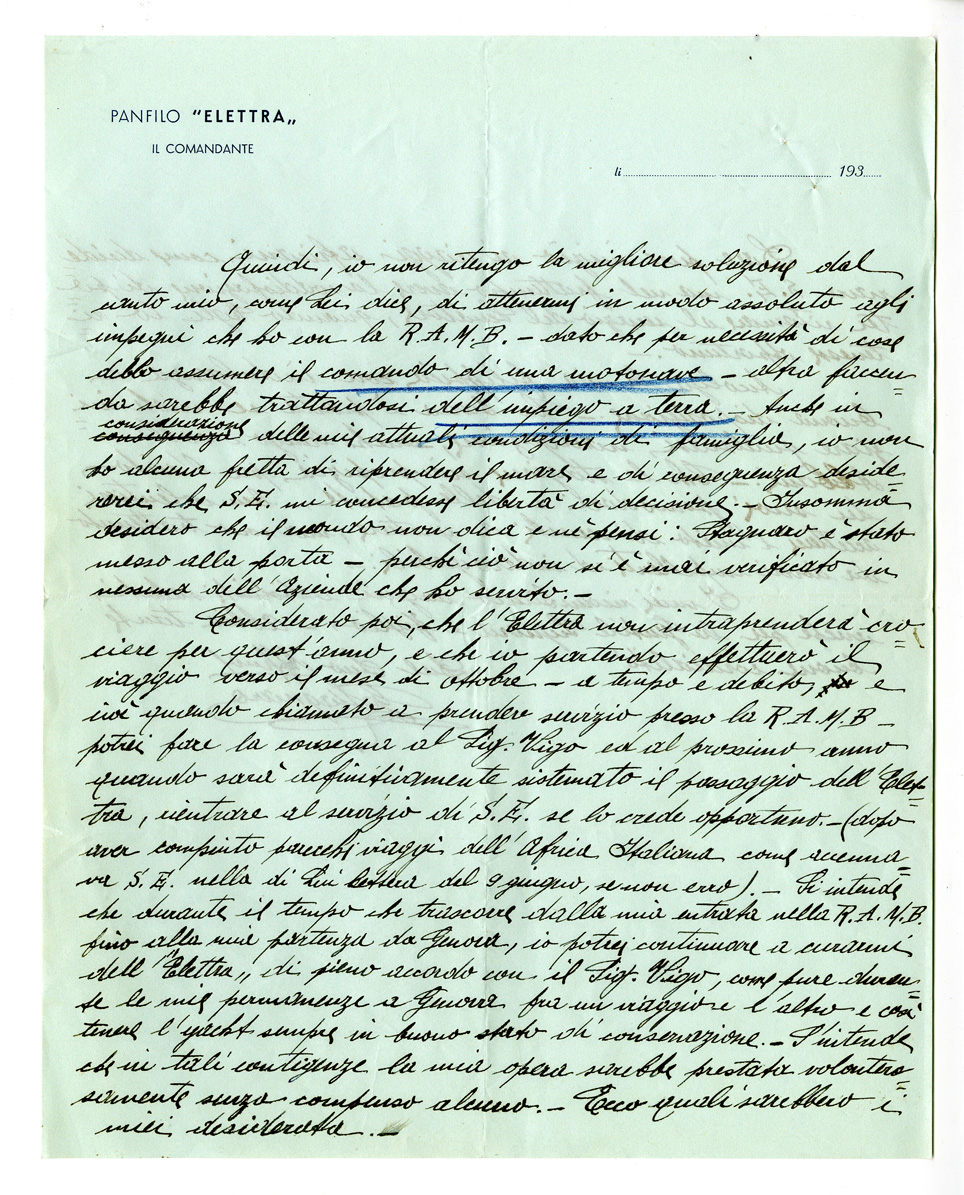 PANFILO "ELETTRA„
IL COMANDANTE
li 193
Quindi, io non ritengo la migliore soluzione dal
canto mio, come Lei dice, di attenermi in modo assoluto agli
impegni che ho con la R.A.M.B. – dato che per necessità di cose
debbo assumere il comando di una motonave – altra faccen=
da sarebbe trattandosi dell'impiego a terra. – Anche in
considerazione
conseguenza delle mie attuali condizioni di famiglia, io non
ho alcuna fretta di riprendere il mare e di conseguenza deside=
rerei che S.E. mi concedesse libertà di decisione. – Insomma
desidero che il mondo non dica e nè pensi: Stagnaro è stato
messo alla porta – perchè ciò non si è mai verificato in
nessuna dell'Aziende che ho servito. –
Considerato poi, che l'Elettra non intraprenderà cro=
ciere per quest'anno, e che io partendo effettuerò il
viaggio verso il mese di ottobre – a tempo e debito, e
cioè quando chiamato a prendere servizio presso la R.A.M.B –
potrei fare la consegna al Sig. Vigo ed al prossimo anno
quando sarà definitivamente sistemato il passaggio dell'Elet=
tra, rientrare al servizio di S.E. se lo crede opportuno. – (dopo
aver compiuto parecchi viaggi dell'Africa Italiana come accenna=
va S.E. nella di Lui lettera del 9 giugno, se non erro). – Si intende
che durante il tempo che trascorre dalla mia entrata nella R.A.M.B.
fino alla mia partenza da Genova, io potrei continuare a curarmi
dell'"Elettra„ di pieno accordo con il Sig. Vigo, come pure duran=
te le mie permanenze a Genova fra un viaggio e l'altro e così
tenere l'yacht sempre in buono stato di conservazione. – S'intende
che in tali contigenze la mia opera sarebbe prestata volontero=
samente senza compenso alcuno. – Ecco quali sarebbero i
miei desiderata. –